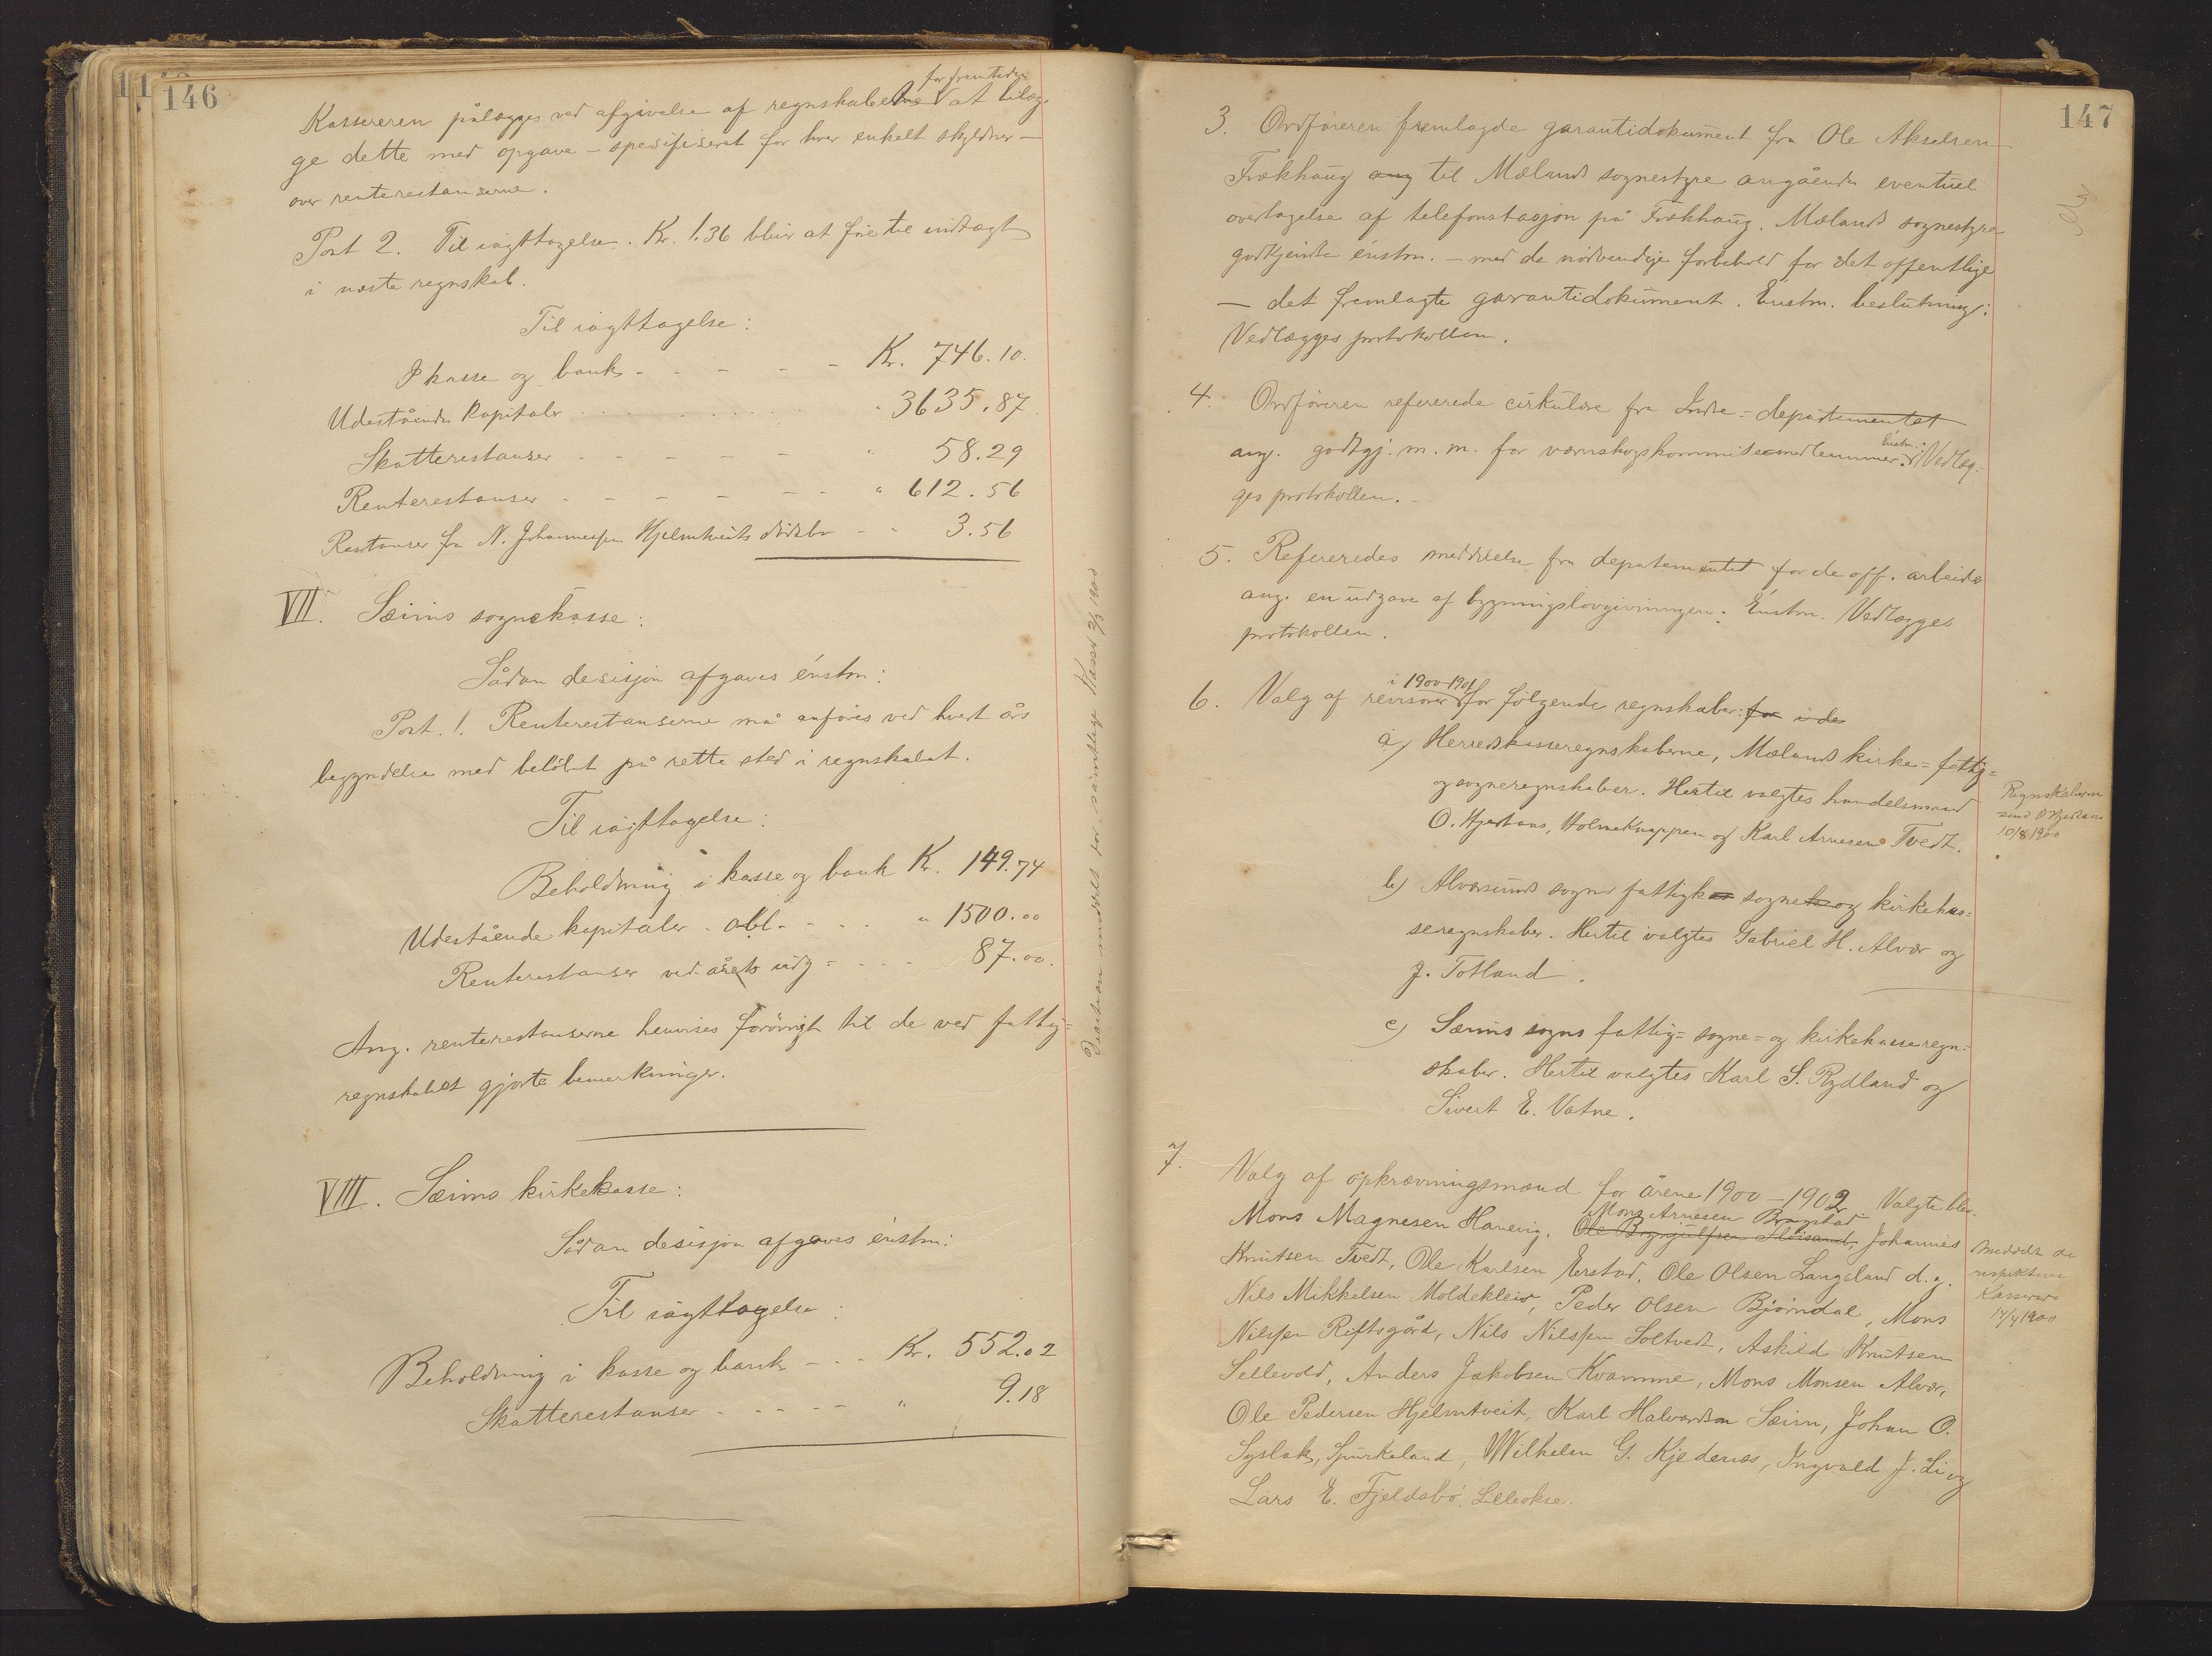 146
for fremtiden
Kassereren pålægges ved afgivelse af regnskaberne at tilæg-
ge dette med opgave - spesifiseret for hver enkelt skyldner -
over renterestanserne.
Post 2. Til iagttagelse. Kr. 1.36 bliver at føre til indtægt
i næste regnskab.
Til iagttagelse:
I kasse og bank - - - - - Kr. 746.10.
Udestående kapitaler " 3635.87
Skatterestanser - - - - - " 58.29
Renterestanser - - - - - - " 612.56
Restanser fra N. Johannessen Hjelmtveits dødsbo - " 3.56
VII. Sæims sognekasse:
Sådan desisjon afgaves énstm:
Post. 1. Renterestanserne må anføres ved hvert års
begyndelse med beløbet på rette sted i regnskabet.
Til iagttagelse:
Beholdning i kasse og bank Kr. 149.74
Udestående kapitaler - obl. - - - " 1500.00
Renterestanser ved årets udg - - - - 87.00.
Ang. renterestanserne henvises forøvrigt til de ved fattig=
regnskabet gjorte bemerkninger.
VIII. Sæims kirkekasse:
Sådan desisjon afgaves énstm:
Til iagttagelse:
Beholdning i kasse og bank - - - Kr. 552.02
Skatterestanser - - - - - " 9.18
Desition meddelt for samtlige Kasser 2/3 1900
147
3. Ordføreren fremlagde garantidokument fra Ole Akselsen
Frækhaug ang til Mælands sognestyre angående eventuel
overtagelse af telefonstasjon på Frækhaug. Mælands sognestyre
godkjendte énstm. - med de nødvendige forbehold for det offentlige
- det fremlagte garantidokument. Énstm. beslutning:
Vedlægges protokollen.
4. Ordføreren refererede cirkulære fra Indre=departementet
ang. godtgj. m. m. for værnskogskommitemedlemmer. Énstm.: Vedlæg-
ges protokollen. -
5. Refereredes meddelelse fra depatementet for de off. arbeide
ang. en udgave af bygningslovgivningen: Énstm. Vedlægges
protokollen.
6. Valg af revisorer i 1900-1901 for følgende regnskaber: for i de
a) Herredskasseregnskaberne, Mælands kirke= fattig=
og sogneregnskaber. Hertil valgtes handelsmand
O. Hjertaas, Holmeknappen og Karl Arnesen Tvedt.
Regnskaberne
send O Hjertaas
10/8 1900
b) Alversunds sogns fattigkas sogneks og kirkekas=
seregnskaber. Hertil valgtes Gabriel H. Alver og
J. Totland.
c) Sæims sogns fattig= sogne= og kirkekasseregn=
skaber. Hertil valgtes Karl S. Rydland og
Sivert E. Vatne.
7. Valg af opkrævningsmænd for årene 1900 - 1902. Valgte blev.
Mons Arnesen Bragstad
Mons Magnesen Hanevig. Ole Brynjulfsen Isdisand, Johannes
Knutsen Tvedt, Ole Karlsen Erstad, Ole Olsen Langeland d.y.
Nils Mikkelsen Moldekleiv, Peder Olsen Bjørndal, Mons
Nilssen Riftsgård, Nils Nilssen Soltvedt, Askild Knutsen
Sellevold, Anders Jakobsen Kvamme, Mons Monsen Alver,
Ole Pedersen Hjelmtveit, Karl Halvardson Sæim, Johan O.
Syslak, Spurkeland, Wilhelm G. Kjedenæs, Ingvald J. Li og
Lars E. Fjeldsbø, Lilleokse.
Meddelt de
respektive
Kasserere
14/4 1900